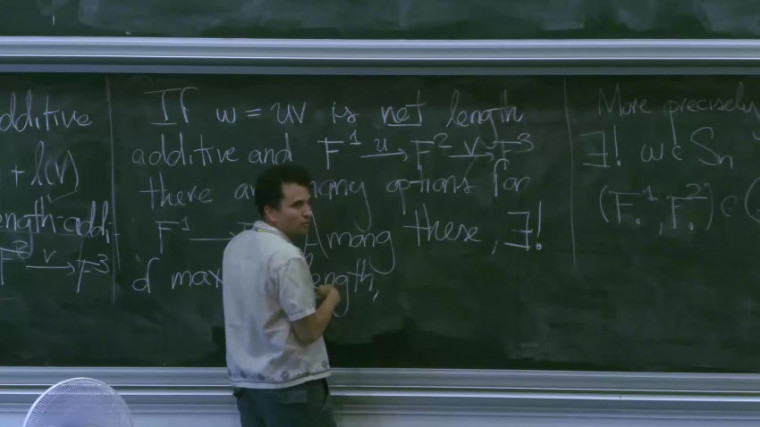 additive
+ l(v)
length-addi
F² →v F³
If w = uv is not length
additive and F¹ →u F² →v F³
there are many options for
F¹ → Among these, ∃!
of max length,
More precisely
∃! w ∈ Sn
(F.¹, F.²) ∈ (